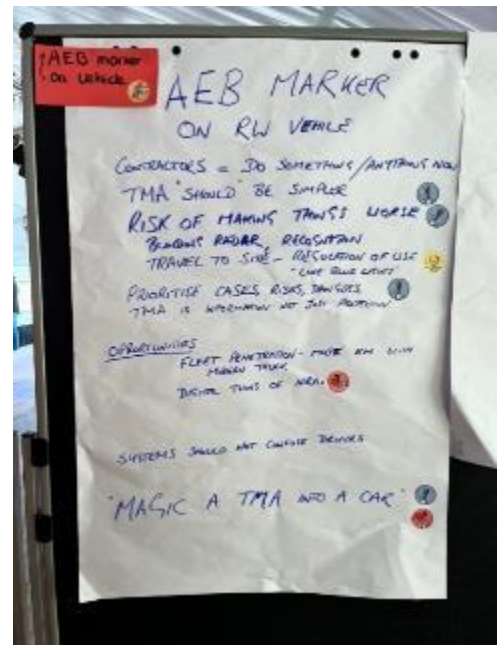 ↑AEB marker
on vehicle
AEB MARKER
ON RW VEHICLE
CONTRACTORS = DO SOMETHING/ANYTHING NOW
TMA "SHOULD" BE SIMPLER
RISK OF MAKING THINGS WORSE
RADAR, RECOGNITION
TRAVEL TO SIDE - REGULATION OF USE
"LIKE BLUE LIGHTS"
PRIORITISE CASES, RISKS, DANGERS
TMA IS INFORMATION NOT JUST PROTECTION
OPPORTUNITIES
FLEET PENETRATION - MORE KM WITH
MODERN TRUCK
DIGITAL TWINS OF
SYSTEMS SHOULD NOT CONFUSE DRIVERS
"MAGIC A TMA INTO A CAR"